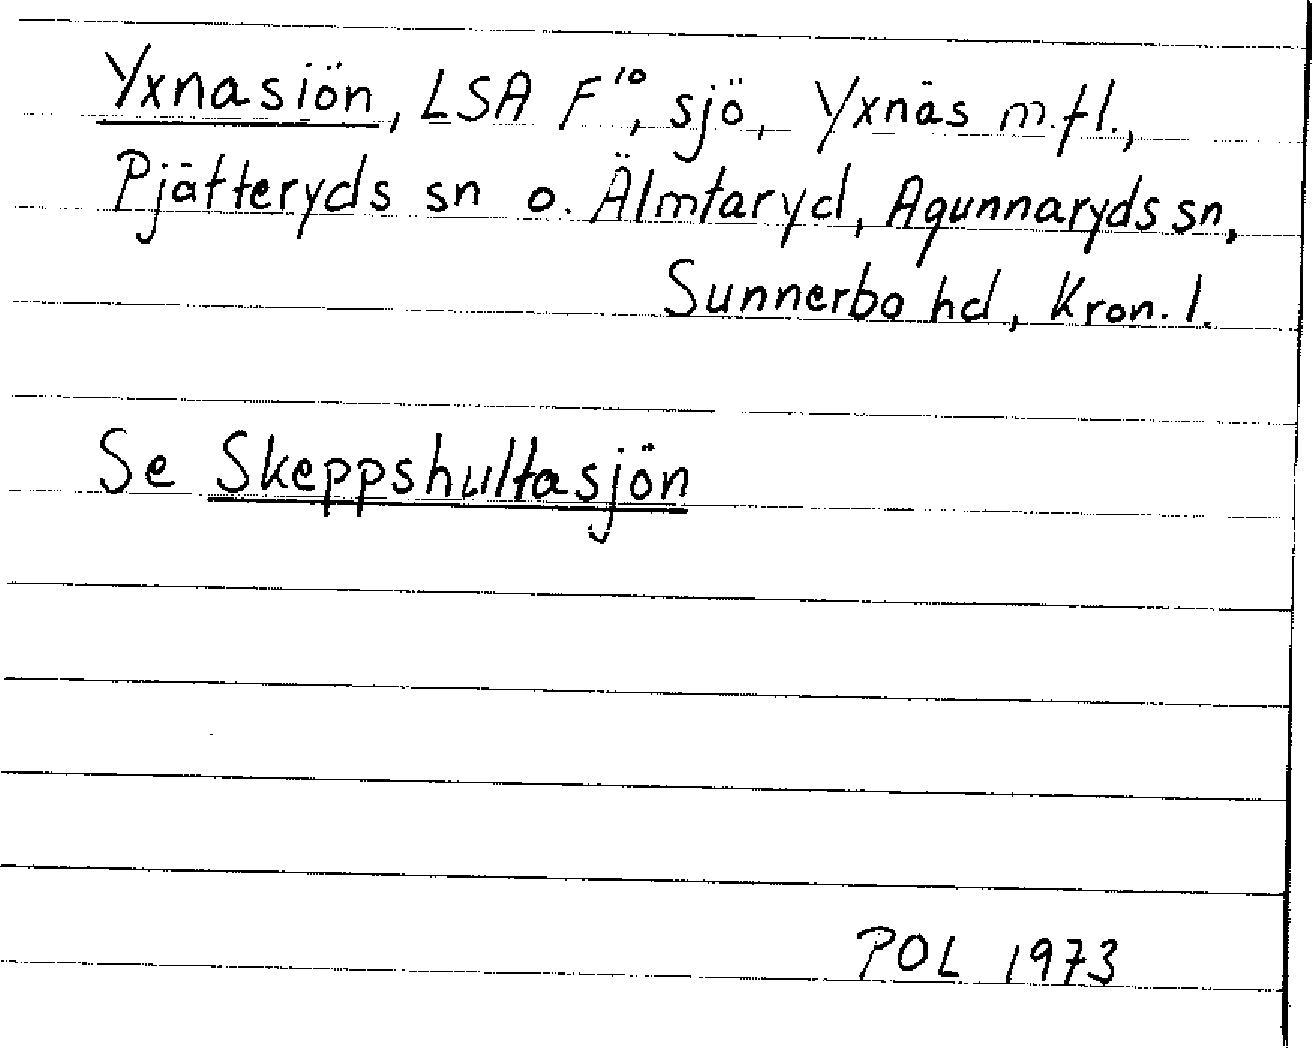 Yxnasiön, LSA F¹⁰, sjö, Yxnäs m.fl.,
Pjätteryds sn o. Älmtaryd, Agunnaryds sn,
Sunnerbo hd, Kron. l.
Se Skeppshultasjön
POL 1973